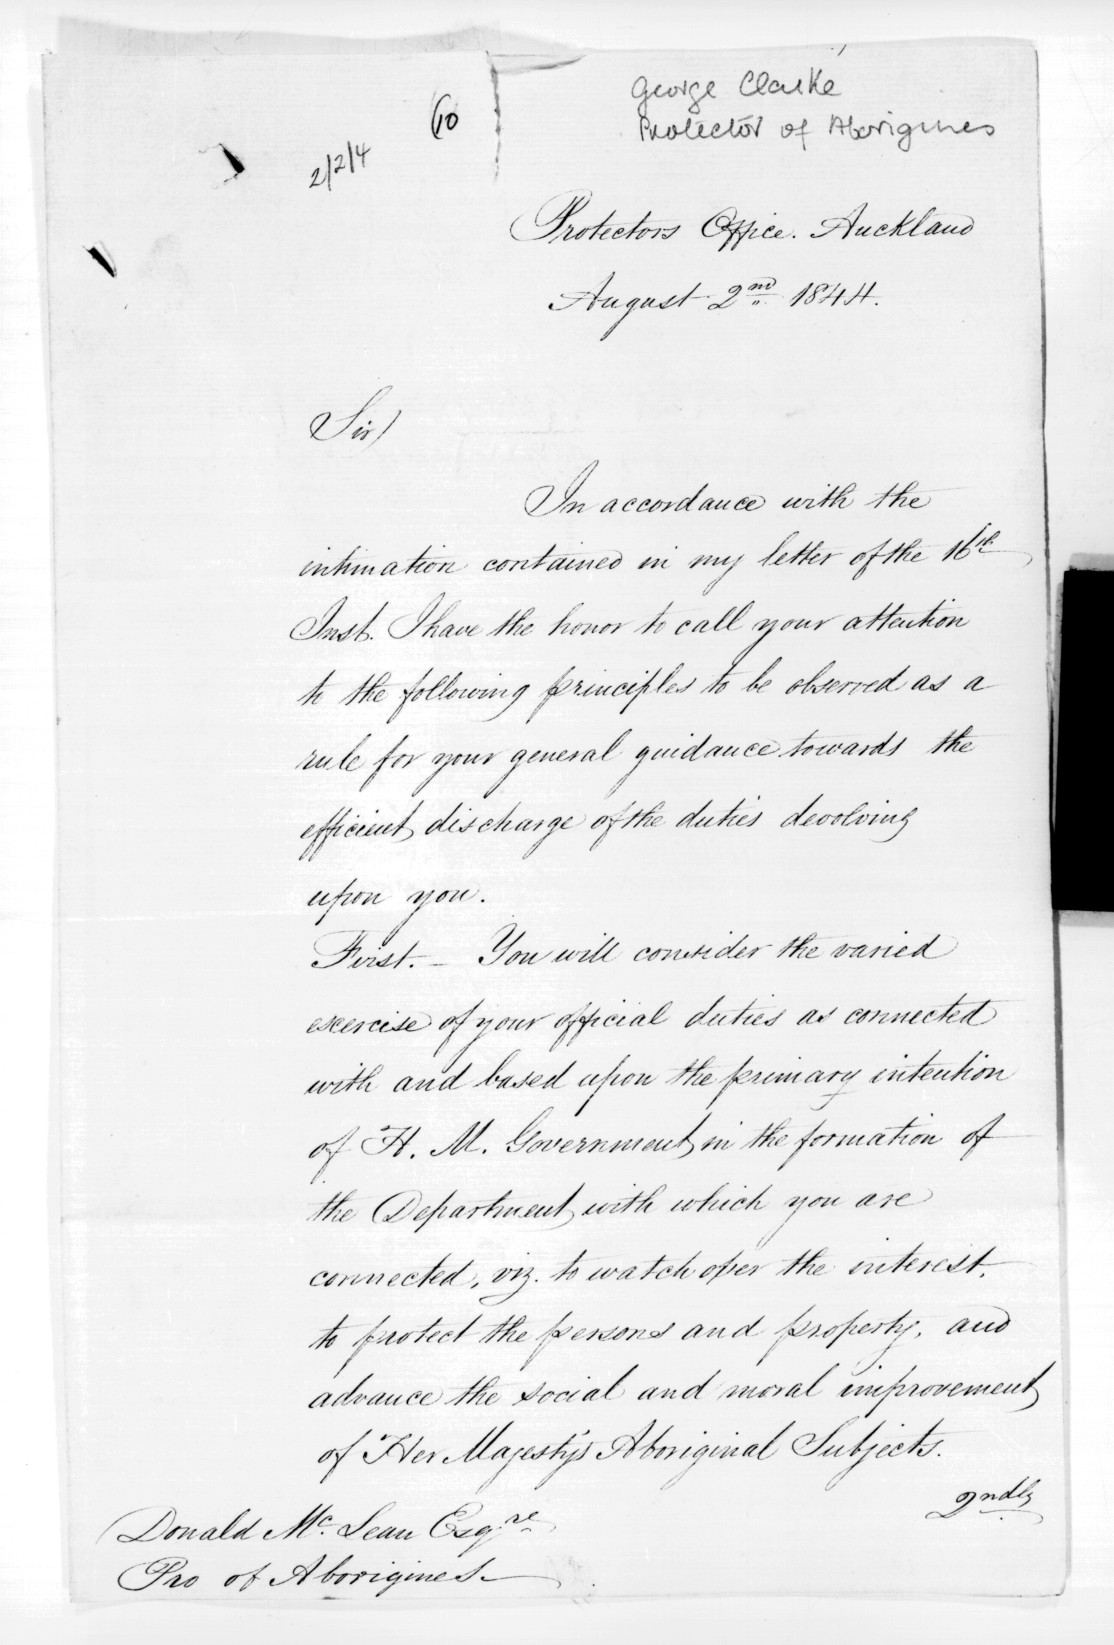 George Clarke
Protector of Aborigines
(10
2/2/4
Protectors Office. Auckland
August 2nd 1844.
Sir/
In accordance with the
intimation contained in my letter of the 16th
Inst. I have the honor to call your attention
to the following principles to be observed as a
rule for your general guidance towards the
efficient discharge of the duties devolving
upon you.
First. _ You will consider the varied
exercise of your official duties as connected
with and based upon the primary intention
of H. M. Government in the formation of
the Department with which you are
connected, viz. to watch over the interest,
to protect the persons and property, and
advance the social and moral improvement
of Her Majesty's Aboriginal Subjects.
2ndly
Donald Mc. Lean Esqre
Pro of Aborigines_